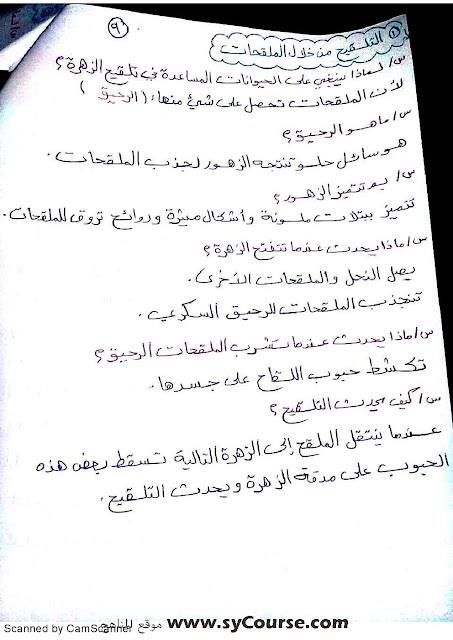 ٩
① التلقيح من خلال الملقحات
س/ لماذا ينبغي على الحيوانات المساعدة في تلقيح الزهرة؟
لأن الملقحات تحصل على شيء منها: (الرحيق)
س/ ما هو الرحيق؟
هو سائل حلو تنتجه الزهور لجذب الملقحات.
س/ بم تتميز الزهور؟
تتميز ببتلات ملونة وأشكال مميزة وروائح تروق للملقحات.
س/ ماذا يحدث عندما تتفتح الزهرة؟
يصل النحل والملقحات الأخرى.
تنجذب الملقحات للرحيق السكري.
س/ ماذا يحدث عندما تشرب الملقحات الرحيق؟
تكشط حبوب اللقاح على جسدها.
س/ كيف يحدث التلقيح؟
عندما ينتقل الملقح إلى الزهرة التالية تسقط بعض هذه
الحبوب على مدقة الزهرة ويحدث التلقيح.
موقع المناهج www.syCourse.com
Scanned by CamScanner